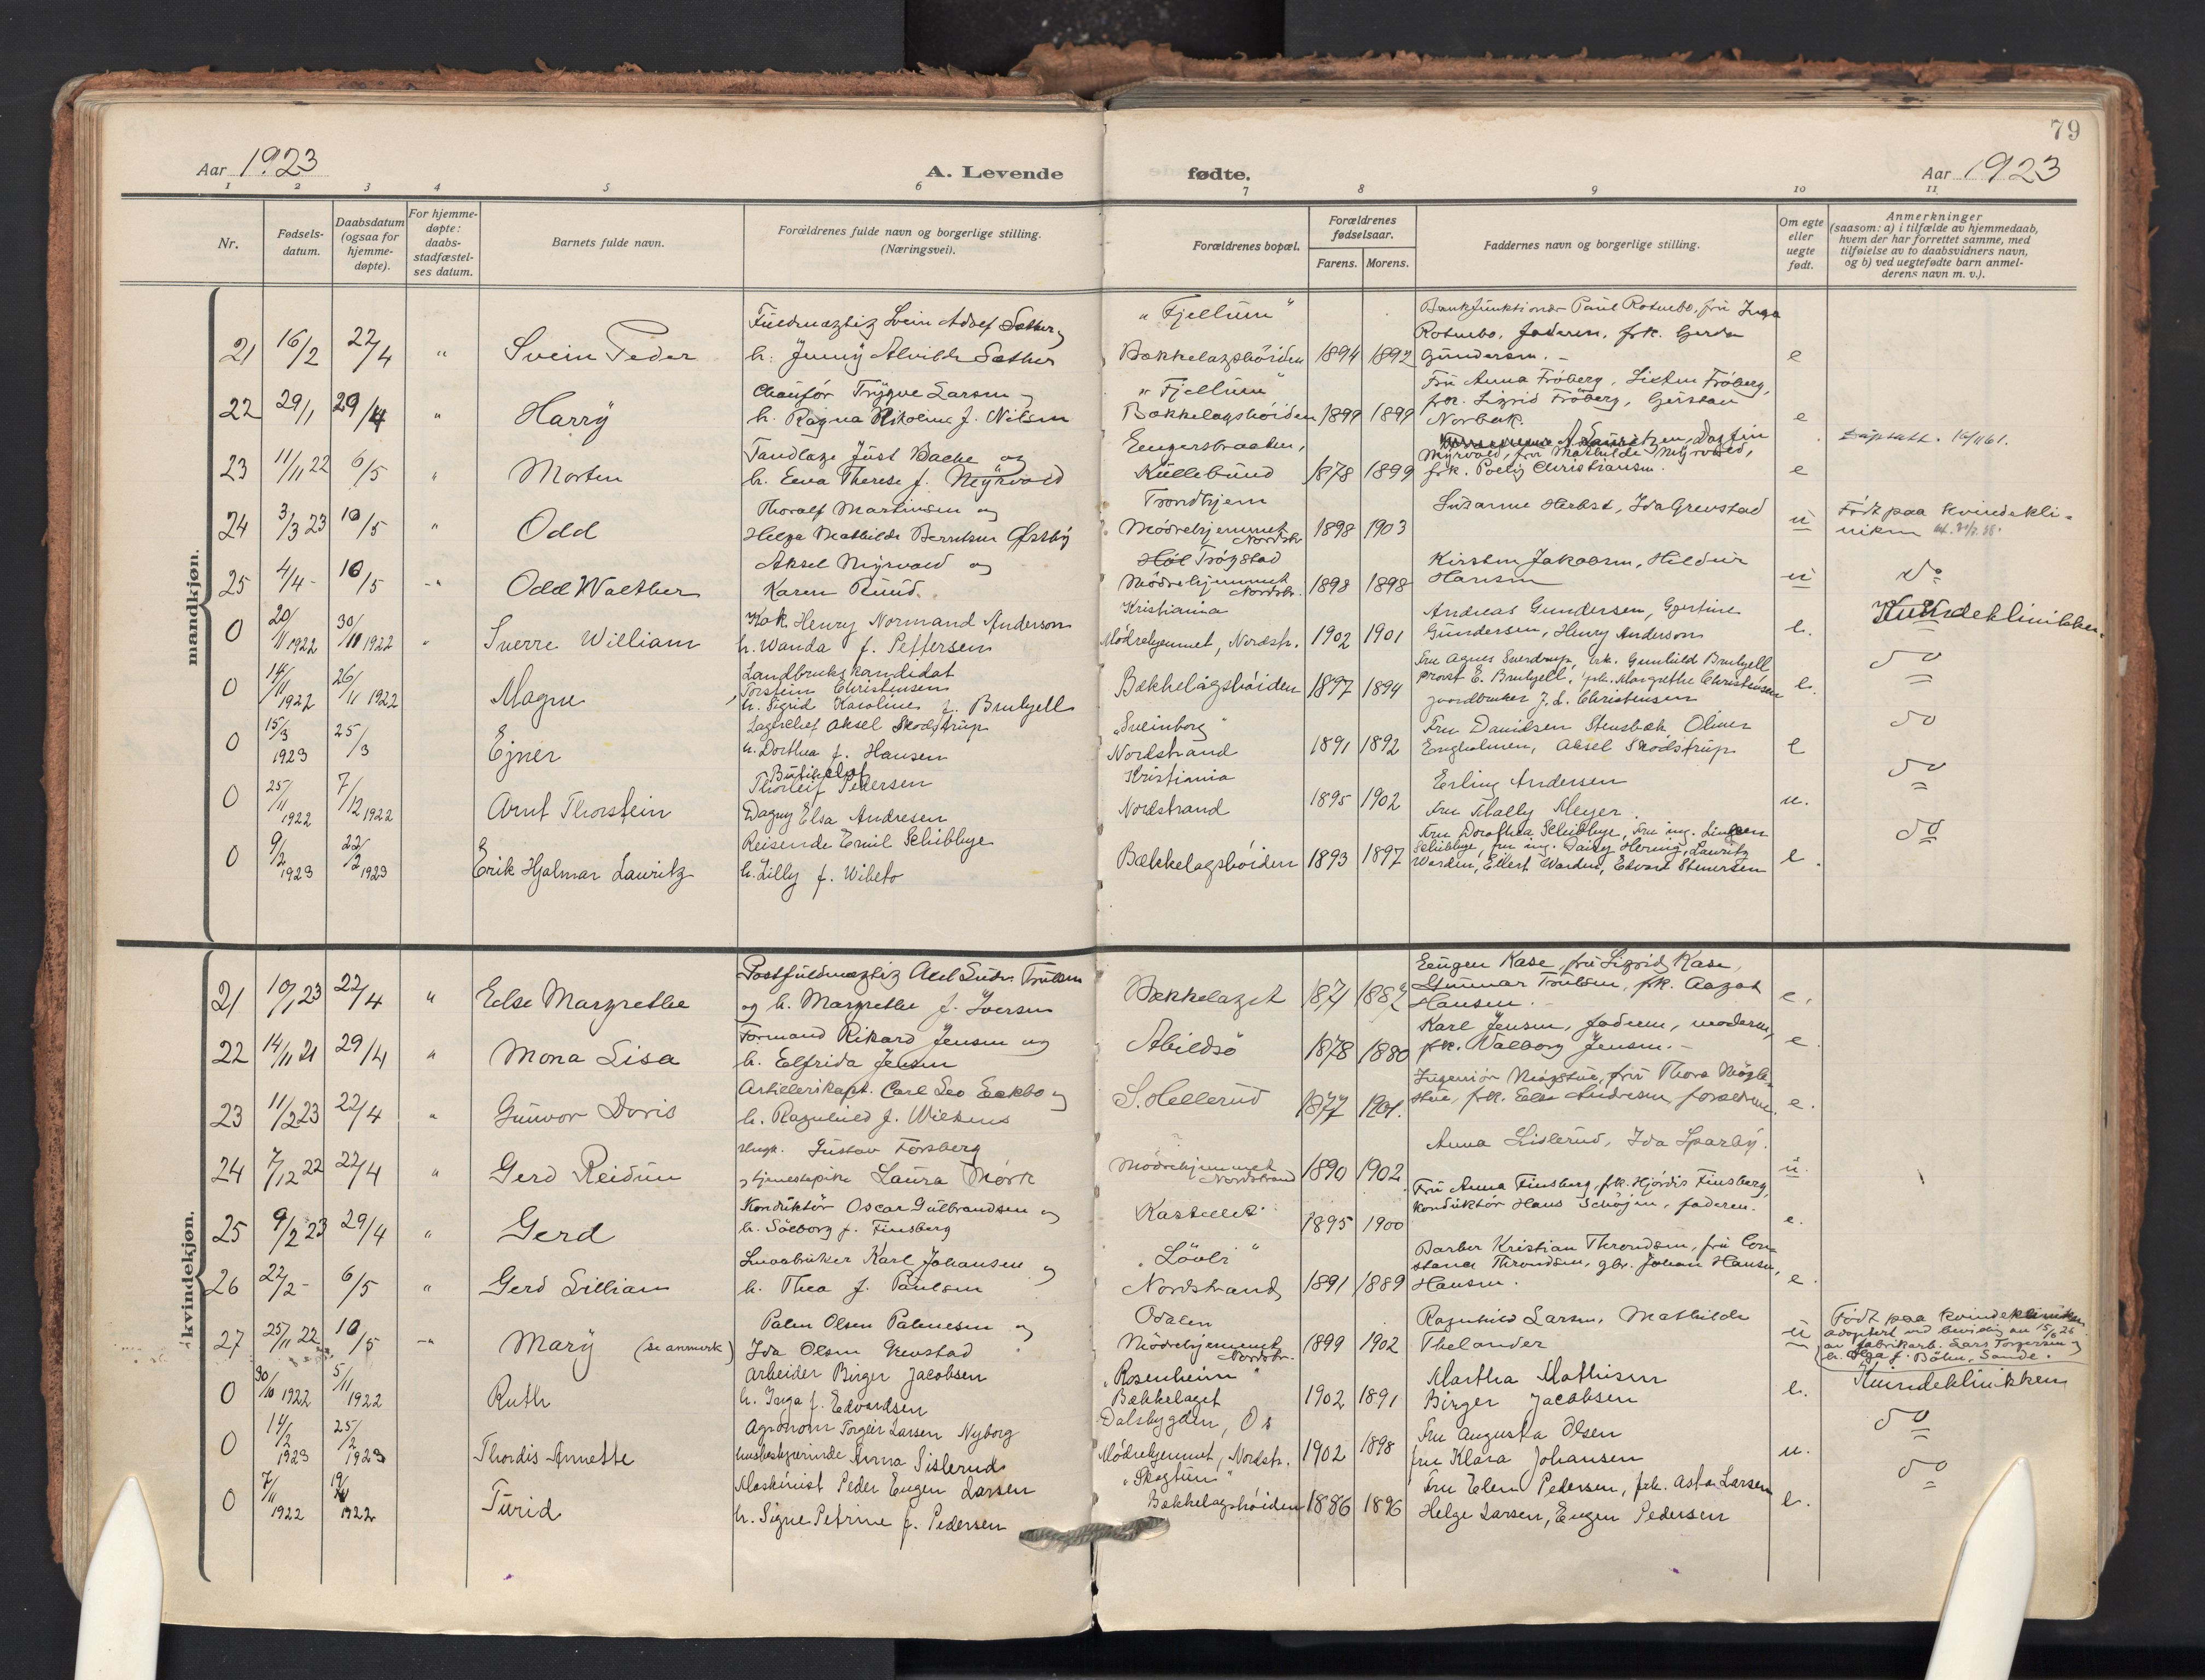 79
Aar 1923
A. Levende fødte.
Aar 1923
1 2 3 4 5 6 7 8 9 10 11
Nr.
Fødsels-
datum.
Daabsdatum
(ogsaa for
hjemme-
døpte).
For hjemme-
døpte:
daabs-
stadfæstel-
ses datum.
Barnets fulde navn.
Forældrenes fulde navn og borgerlige stilling.
(Næringsvei).
Forældrenes bopæl.
Forældrenes
fødselsaar.
Farens. Morens.
Faddernes navn og borgerlige stilling.
Om egte
eller
uegte
født.
Anmerkninger
(saasom: a) i tilfælde av hjemmedaab,
hvem der har forrettet samme, med
tilføielse av to daabsvidners navn,
og b) ved uegtefødte barn anmel-
derens navn m. v.).
mandkjøn.
Fuldmægtig Svein Adolf Sæther
"Fjellum"
Bankfunktionær Paul Rotnebo, fru Inga
Rotnebo, faderen, frk. Gerda
21 16/2 22/4 " Svein Peder h. Jenny Alvilde Sæther Bækkelagshöiden 1894 1892 Gundersen. - e
Chauför Trygve Larsen og
"Fjellum"
Fru Anna Fröberg, Fröberg,
frk. Sigrid Fröberg,
22 29/1 29/4 " Harry h. Ragna Nikoline f. Nilsen Bækkelagshöiden 1899 1899 Norbæk. e
Tandlæge Just Bache og
A. Lauritzen, Dagfin
Myrvold, fru Mathilde Myrvold,
23 11/11 22 6/5 " Morten h. Eeva Therese f. Myrvold Kullebund 1878 1899 frk. Christiansen. e
Thoralf Martinsen og
Trondhjem
Susanne Herbst, Ida Grevstad
24 3/3 23 10/5 " Odd Helga Mathilde Berntsen Østby Mödrehjemmet Nordstr. 1898 1903 u Födt paa Kvindekli-
niken
Aksel Myrvold og
Höl Trögstad
Kirsten Jakobsen, Hildur
25 4/4 - 10/5 -" Odd Walther Karen Ruud. Mödrehjemmet Nordstr. 1898 1898 Hansen u Do
Kok Henry Normand Anderson
Kristiania
Andreas Gundersen, Gjertine
0 20/11 1922 30/11 1922 " Sverre William h. Wanda f. Pettersen Mödrehjemmet, Nordstr. 1902 1901 Gundersen, Henry Anderson e. Kvindeklinikken.
Landbrukskandidat
Torstein Christensen
Fru Agnes Sverdrup, frk. Gunhild Brutzell
provst E. Brutzell, frk. Margrethe Christensen
0 14/11 1922 26/11 1922 Magne h. Sigrid Karoline f. Brutzell Bækkelagshöiden 1897 1894 gaardbruker J. L. Christensen e. do
Lagerchef Aksel Skodstrup
"Sveinborg"
Fru Davidsen Stensbæk Oliver
0 15/3 1923 25/3 Ejner h. Dorthea f. Hansen Nordstrand 1891 1892 Engholmen, Aksel Skodstrup e do
Thorleif Pedersen
Kristiania
Erling Andersen
0 25/11 1922 7/12 1922 Arnt Thorstein Dagny Elsa Andresen Nordstrand 1895 1902 Fru Mally Meyer. u. do
Reisende Emil Schibbye
Fru Dorothea Schibbye, fru ing.
Schibbye, fru ing. Daisy Hernig, Lauritz
0 9/2 1923 22/2 1923 Erik Hjalmar Lauritz h. Lilly f. Wibeto Bækkelagshöiden 1893 1897 Warden, Eilert Warden, Edvard Stenersen e. do
kvindekjøn.
Postfuldmægtig Axel Trulsen
Eugen Kase, fru Sigrid Kase,
21 10/1 23 22/4 " Else Margrethe og h. Margrethe f. Iversen Bækkelaget 1871 1887 Gunnar Trulsen, frk. Aagot
Hansen. e.
Formand Rikard Jensen og
Karl Jensen, faderen, moderen,
22 14/11 21 29/4 " Mona Lisa h. Elfrida Jensen Abildsö 1878 1880 frk. Valborg Jensen. - e.
Artillerikapt. Carl Leo Eckbo og
Ingeniör fru Thora
23 11/2 23 22/4 " Gunvor Doris h. Ragnhild f. Wilkens S. Hellerud 1877 1901. frk. Else Andresen, forældrene. e.
Ungk. Gustav Forsberg
Anna Lislerud, Ida Sparby.
24 7/12 22 22/4 " Gerd Reidun og tjenestepike Laura Mörk Mödrehjemmet Nordstrand 1890 1902 u.
Konduktör Oscar Gulbrandsen og
Fru Anna Finsberg, frk. Hjördis Finsberg,
konduktör Hans Schöyen, faderen.
25 9/2 23 29/4 " Gerd h. Sölborg f. Finsberg Kastellet 1895 1900 e.
Smaabruker Karl Johansen og
"Lövli"
Barber Kristian Throndsen, fru Con-
stance Throndsen, gbr. Johan Hansen,
26 22/2 - 6/5 " Gerd Lillian h. Thea f. Paulsen Nordstrand 1891 1889 Hansen. e.
Palm Olsen Palmesen og
Odalen
Ragnhild Larsen, Mathilde
Födt paa Kvindekliniken
27 25/11 22 10/5 -" Mary (se anmerk) Ida Olsen Grevstad Mödrehjemmet Nordstr. 1899 1902 Thelander u adoptert ved bevilling av 15/6 26
av fabrikarb. Lars Torgersen og
h. Olga f. Böhn, Sande.
Arbeider Birger Jacobsen
"Rosenheim"
Martha Mathisen
0 30/10 1922 5/11 1922 Ruth h. Inga f. Edvardsen Bækkelaget 1902 1891 Birger Jacobsen e. Kvindeklinikken
Agronom Torgeir Larsen Nyborg
Dalsbygden, Os
Fru Augusta Olsen
0 14/2 1923 25/2 1923 Thordis Annette husbestyrerinde Anna Sislerud Mödrehjemmet, Nordstr. 1902 1898 fru Klara Johansen u. do
Maskinist Peder Eugen Larsen
"Skogtun"
Fru Elen Pedersen, frk. Asta Larsen
0 7/11 1922 19/11 1922 Turid h. Signe Petrine f. Pedersen Bækkelagshöiden 1886 1896 Helge Larsen, Eugen Pedersen e. do